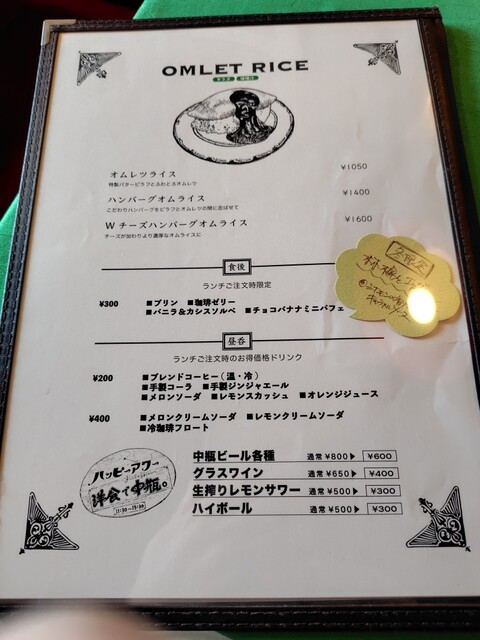 OMLET RICE
オムレツライス ¥1050
特製バターピラフとふわとろオムレツ
ハンバーグオムライス ¥1400
こだわりハンバーグをピラフとオムレツの間に忍ばせて
W チーズハンバーグオムライス ¥1600
チーズが加わりより濃厚なオムライスに
食後
ランチご注文時限定
¥300 ■プリン ■珈琲ゼリー
■バニラ＆カシスソルベ ■チョコバナナミニパフェ
昼呑
ランチご注文時のお得価格ドリンク
¥200 ■ブレンドコーヒー（温・冷）
■手製コーラ ■手製ジンジャエール
■メロンソーダ ■レモンスカッシュ ■オレンジジュース
¥400 ■メロンクリームソーダ ■レモンクリームソーダ
■冷珈琲フロート
ハッピーアワー
洋食で中瓶。
中瓶ビール各種 通常 ¥800▶ ¥600
グラスワイン 通常 ¥650▶ ¥400
生搾りレモンサワー 通常 ¥500▶ ¥300
ハイボール 通常 ¥500▶ ¥300